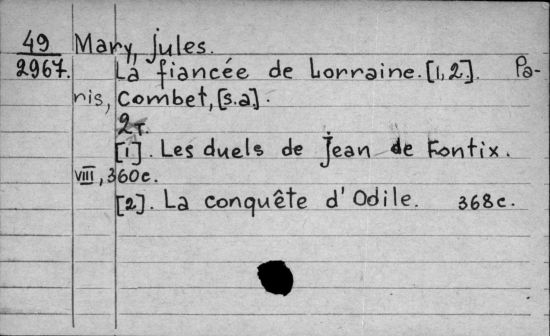 49 Mary, Jules.
2967. La fiancée de Lorraine. [1,2]. Pa-
ris, Combet, [s.a].
2 т.
[1]. Les duels de Jean de Fontix.
VIII, 360c.
[2]. La conquête d'Odile. 368c.